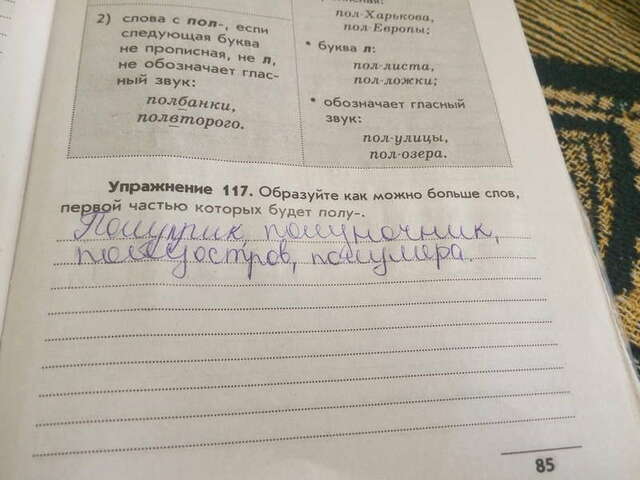 2) слова с пол-, если
следующая буква
не прописная, не л,
не обозначает глас-
ный звук:
полбанки,
полвторого.
пол-Харькова,
пол-Европы;
• буква л:
пол-листа,
пол-ложки;
• обозначает гласный
звук:
пол-улицы,
пол-озера.
Упражнение 117. Образуйте как можно больше слов,
первой частью которых будет полу-.
полуночник,
полуостров, полумера.
85